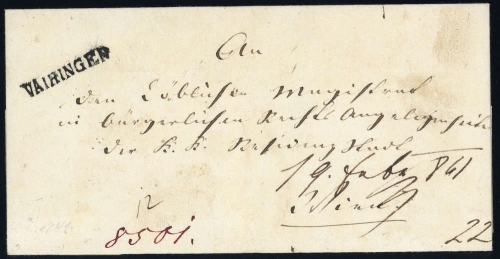 VAIHINGEN
An
den Löblichen Magistrat
in bürgerlichen Rechts Angelegenheiten
der K. K. Residenz Stadt
19. Febr 861
Wien
12
8501.
22